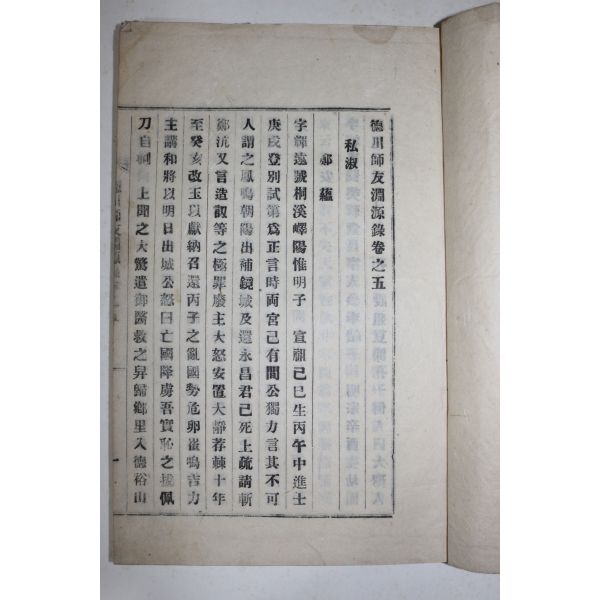 德川師友淵源錄卷之五
私淑
鄭安蘊
字輝遠號桐溪嶧陽惟明子 宣祖己巳生丙午中進士
庚戌登別試第爲正言時兩宮已有間公獨力言其不可
人謂之鳳鳴朝陽出補鏡城及還永昌君已死上疏請斬
鄭沆又言造訕等之極罪廢主大怒安置大靜荐棘十年
至癸亥改玉以獻納召還丙子之亂國勢危卵崔鳴吉力
主講和將以明日出城公怒曰亡國降虜吾實恥之拔佩
刀自刺 上聞之大驚遣御醫救之舁歸鄉里入德裕山